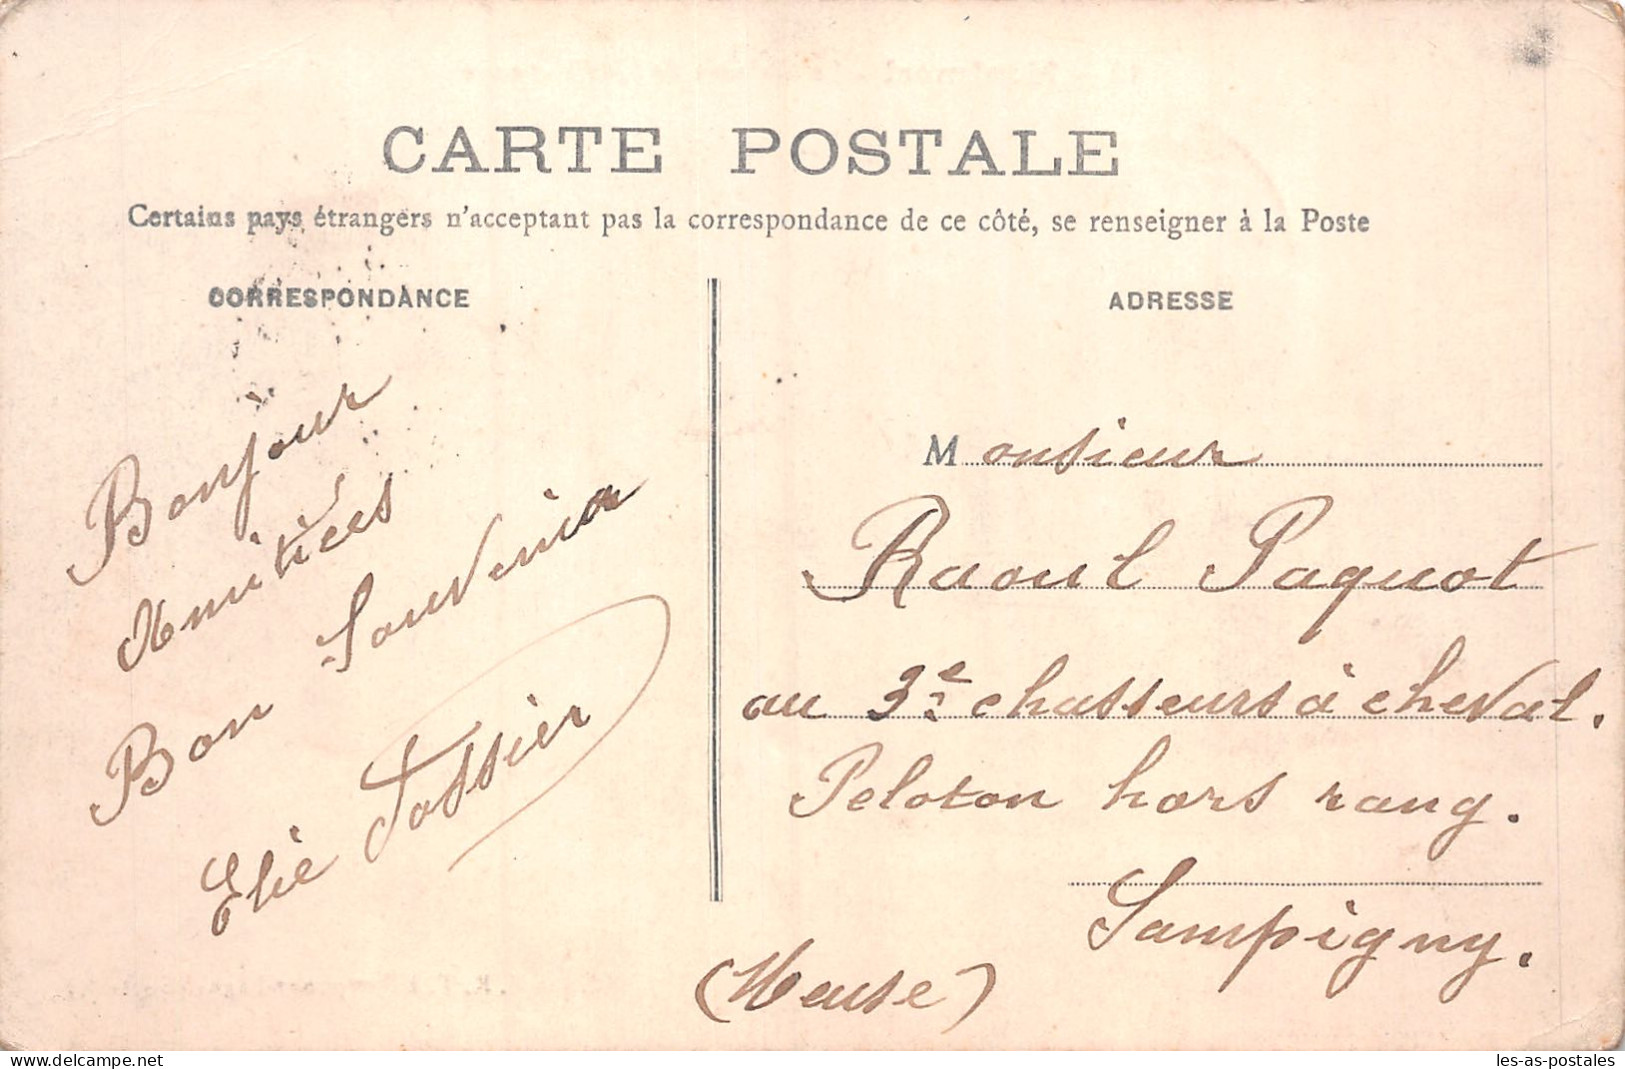 CARTE POSTALE
Certains pays étrangers n'acceptant pas la correspondance de ce côté, se renseigner à la Poste
CORRESPONDANCE
Bonjour
Amitiées
Bon Souvenir
Elie Tossier
ADRESSE
Monsieur
Raoul Paquot
au 3e chasseurs à cheval.
Peloton hors rang.
Sampigny.
(Meuse)
delcampe.net
les-as-postales